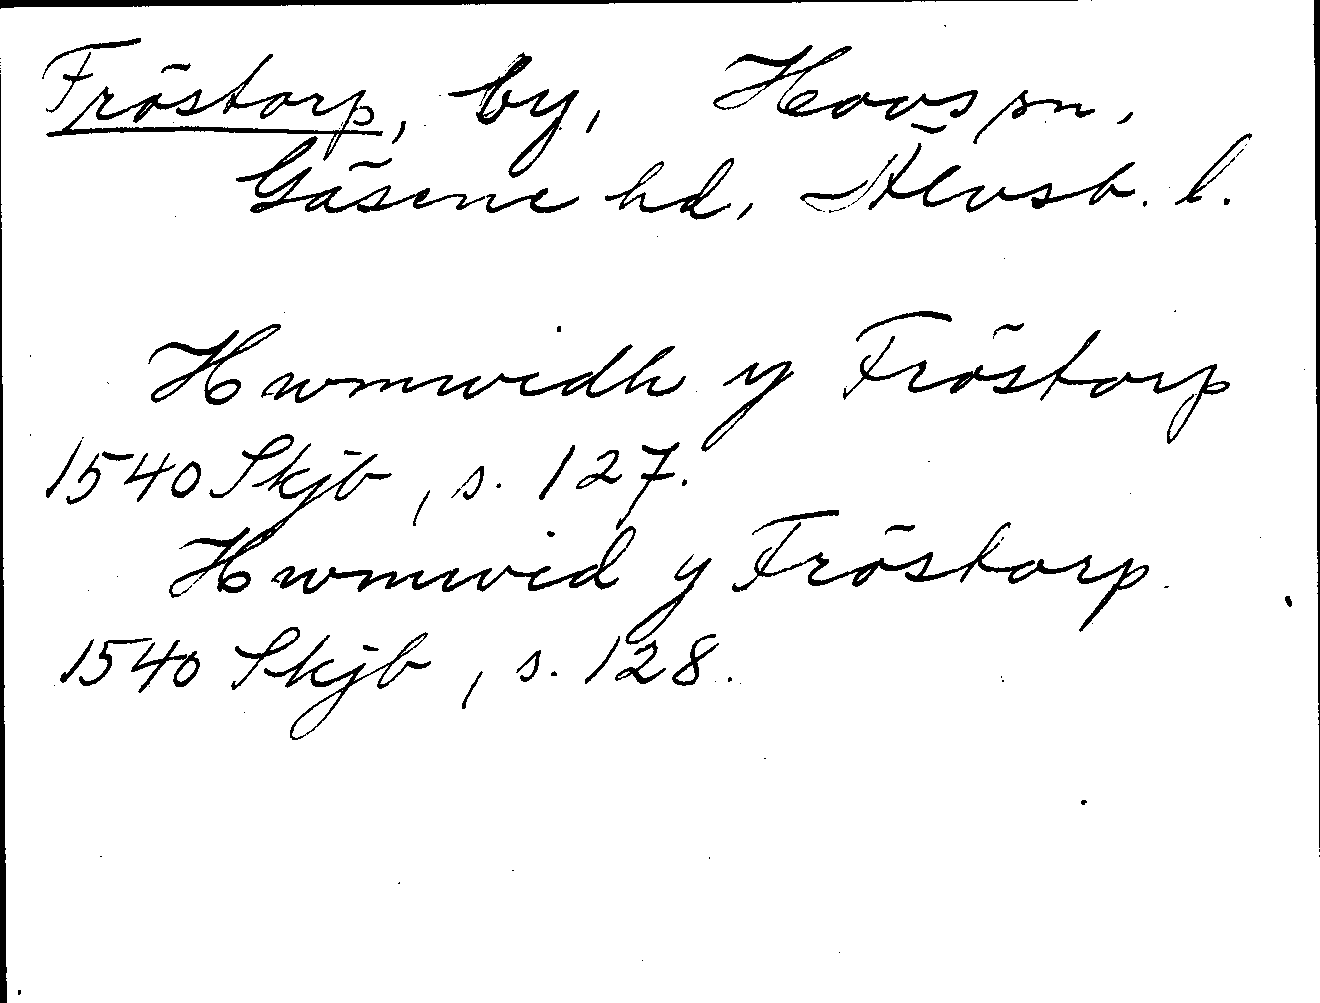 Fröstorp, by, Hovs sn,
Gäsene hd, Älvsb. l.
Hwmwidh y Fröstorp
1540 Skjb, s. 127.
Hwmwid y Fröstorp
1540 Skjb, s. 128.